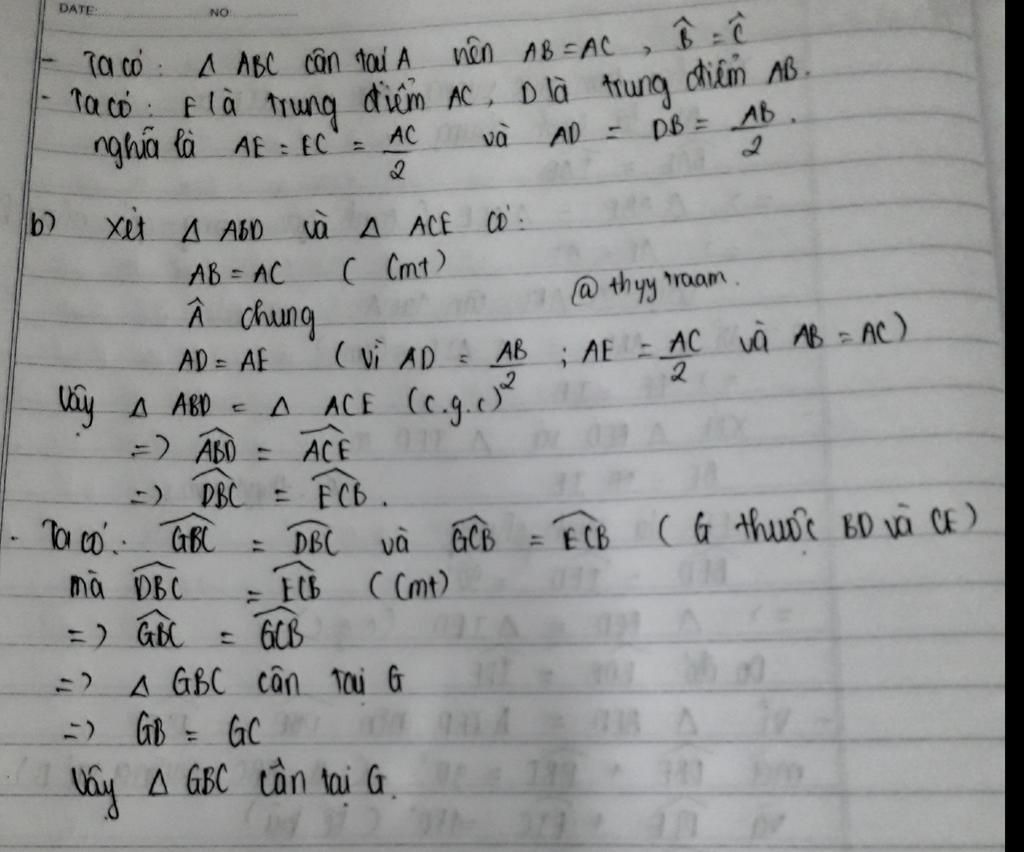 DATE: NO
- Ta có: Δ ABC cân tại A nên AB = AC, B̂ = Ĉ
- Ta có: E là trung điểm AC, D là trung điểm AB.
nghĩa là AE = EC = AC/2 và AD = DB = AB/2.
b) Xét Δ ABD và Δ ACE có:
AB = AC (Cmt)
@ thyy traam.
Â chung
AD = AE (vì AD = AB/2 ; AE = AC/2 và AB = AC)
Vậy Δ ABD = Δ ACE (c.g.c)
=> \widehat{ABD} = \widehat{ACE}
=> \widehat{DBC} = \widehat{ECB}.
- Ta có: \widehat{GBC} = \widehat{DBC} và \widehat{GCB} = \widehat{ECB} (G thuộc BD và CE)
mà \widehat{DBC} = \widehat{ECB} (Cmt)
=> \widehat{GBC} = \widehat{GCB}
=> Δ GBC cân tại G
=> GB = GC
Vậy Δ GBC cân tại G.